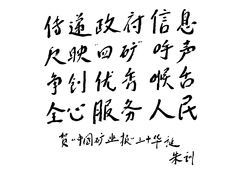 传递政府信息
反映“四矿”呼声
争创优秀喉舌
全心服务人民
贺“中国矿业报”十华诞
朱训